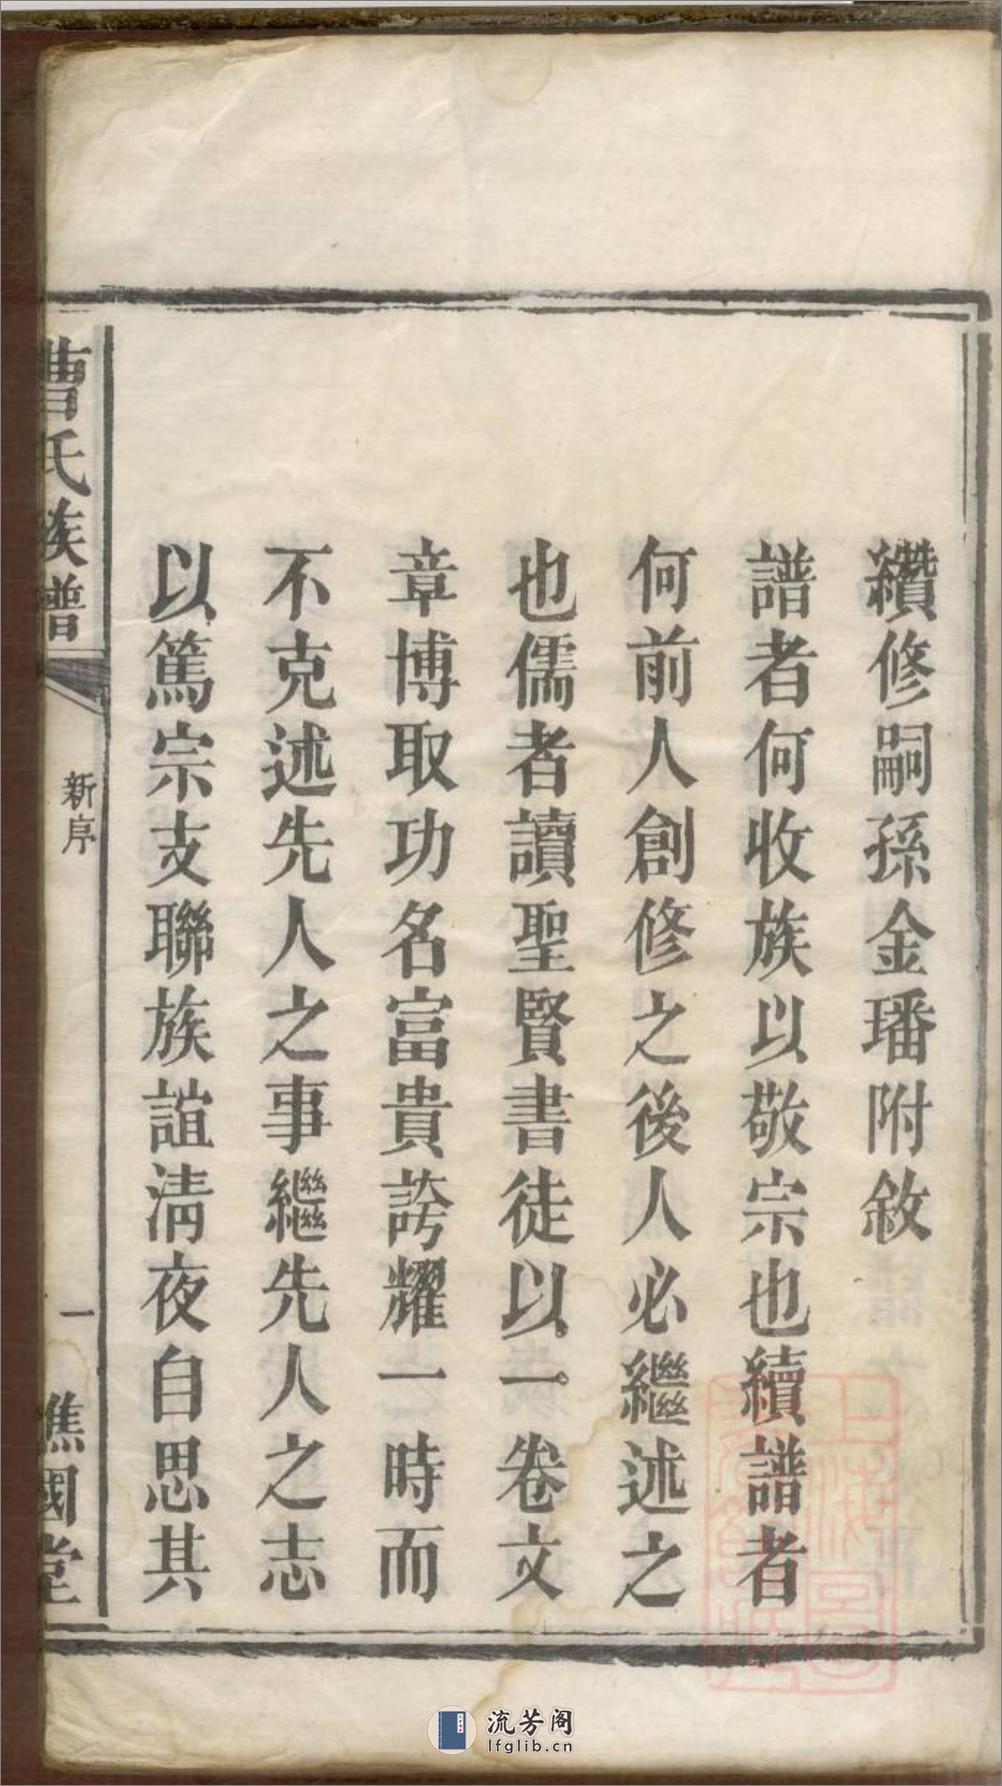 纘修嗣孫金璠附敘
譜者何收族以敬宗也續譜者
何前人創修之後人必繼述之
也儒者讀聖賢書徒以一卷文
章博取功名富貴誇耀一時而
不克述先人之事繼先人之志
以篤宗支聯族誼淸夜自思其
曹氏族譜
新序
一
譙國堂
流芳阁
lfglib.cn